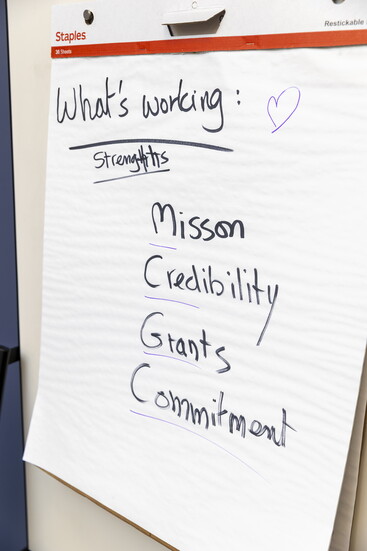 Staples
Restickable
30 Sheets
What's working :
Strengths
Misson
Credibility
Grants
Commitment